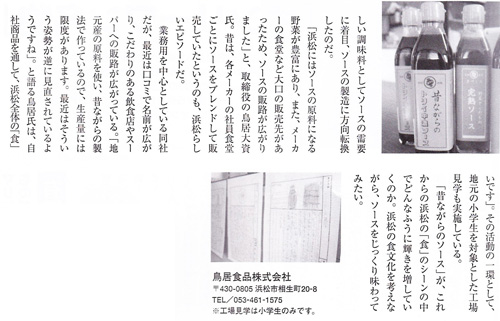 しい調味料としてソースの需要
に着目、ソースの製造に方向転換
したのだ。
「浜松にはソースの原料になる
野菜が豊富にあり、また、メーカ
ーの食堂など大口の販売先があ
ったため、ソースの販路が広がり
ました」と、取締役の鳥居大資
氏。昔は、各メーカーの社員食堂
ごとにソースをブレンドして販
売していたというのも、浜松らし
いエピソードだ。
業務用を中心としている同社
だが、最近は口コミで名前が広が
り、こだわりのある飲食店やスー
パーへの販路が広がっている。「地
元産の原料を使い、昔ながらの製
法で作っているので、生産量には
限度があります。最近はそうい
う姿勢が逆に見直されているよ
うですね」。と語る鳥居氏は、自
社商品を通して、浜松全体の“食”
昔ながらの
いです」。その活動の一環として、
地元の小学生を対象とした工場
見学も実施している。
「昔ながらのソース」が、これ
からの浜松の「食」のシーンの中
でどんなふうに輝きを増してい
くのか。浜松の食文化を考えな
がら、ソースをじっくり味わって
みたい。
鳥居食品株式会社
〒430-0805 浜松市相生町20-8
TEL/053-461-1575
※工場見学は小学生のみです。